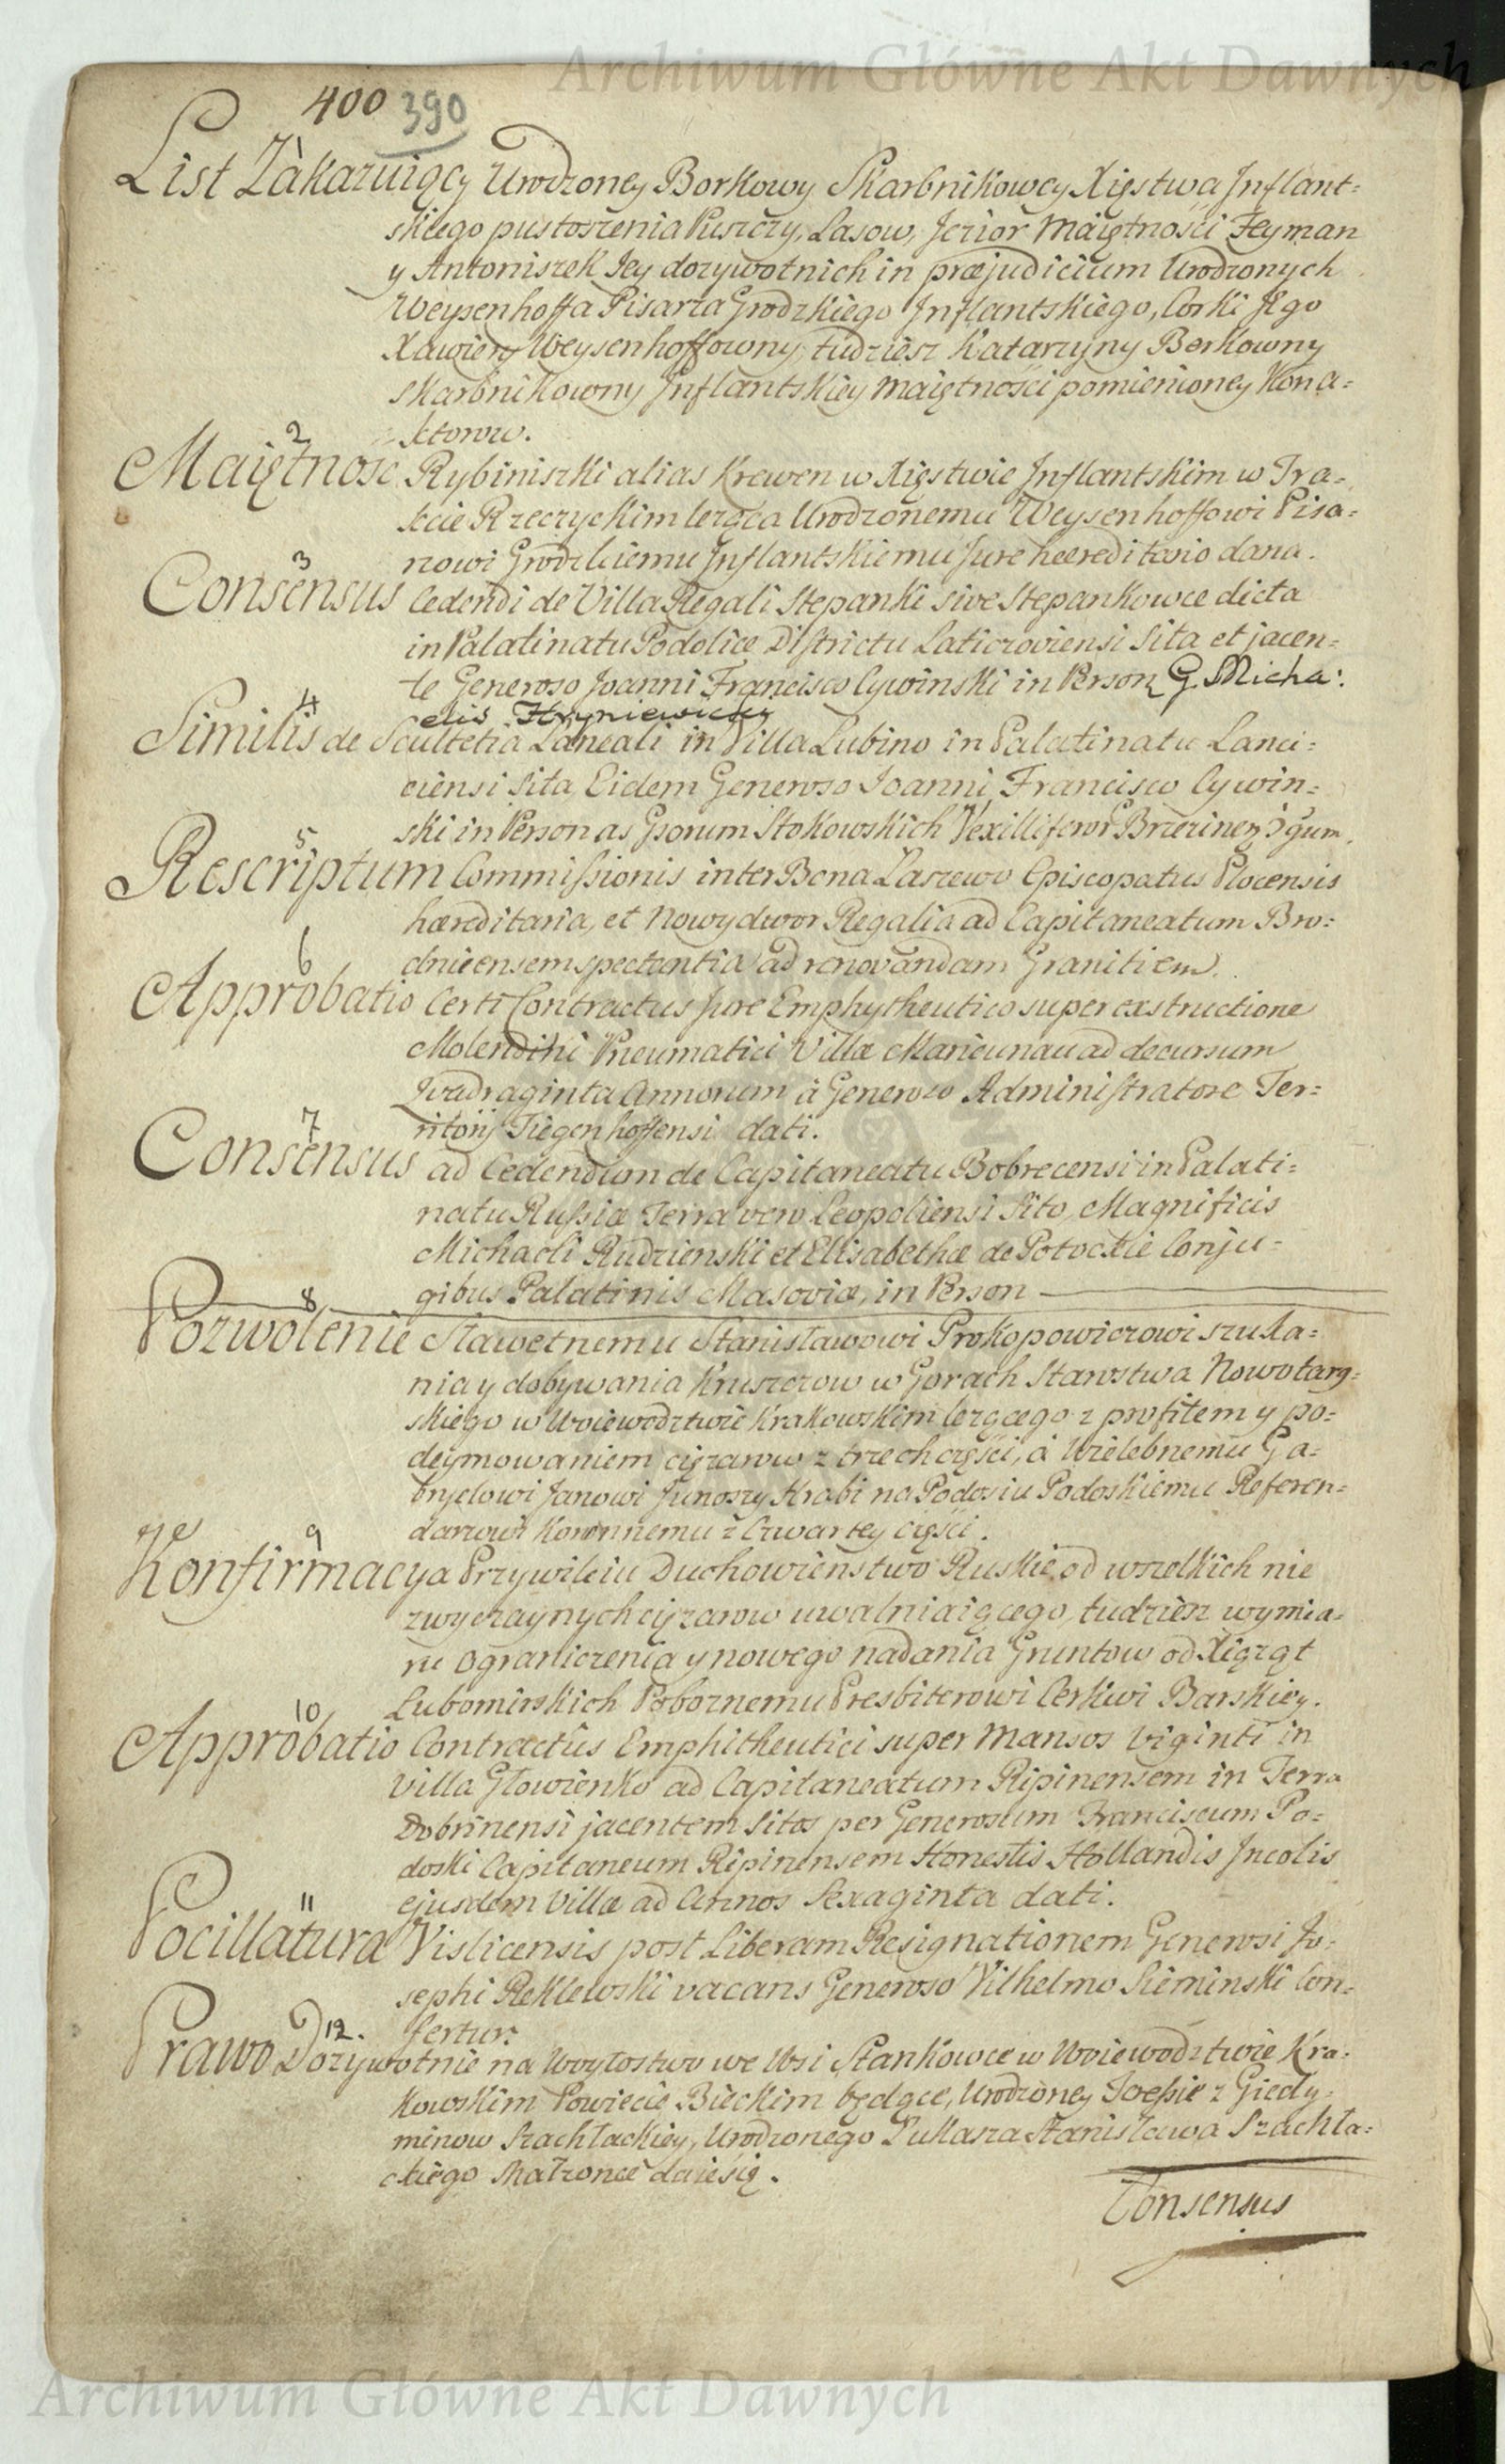 Archiwum Główne Akt Dawnych
400 390
List Zàkazuiący Urodzoney Borkowy Skarbnikowey Xięstwa Inflant=
skiego pustoszenia Puszczy, Lasow, Jezior Maiętności Feyman
y Antoniszek Jey dozywotnich in præjudicium Urodzonych
Weysenhoffa Pisarza Grodzkiego Inflantskiego, Corki Jego
Xawiery Weysenhoffowny, tudziesz Katarzyny Borkowny
Skarbnikowny Inflantskiey maiętności pomienioney Kona=
ktorow.
2
Maiętnosc Rybiniszki alias Krewen w Xięstwie Inflantskim w Tra=
kcie Rzeczyckim leząca Urodzonemu Weysenhoffowi Pisa=
rzowi Grodzkiemu Inflantskiemu Jure hæreditario dana.
3
Consensus Cedendi de Villa Regali Stepanki sive Stepankowce dicta
in Palatinatu Podoliæ Districtu Laticzoviensi Sita et jacen=
te Generoso Joanni Francisco Cywinski in Person G. Micha:
elis Hryniewicki
4
Similis de Scultetia Laneali in Villa Lubino in Palatinatu Lanci=
ciensi Sita, Eidem Generoso Joanni Francisco Cywin=
ski in Personas Gsorum Stokowskich Vexilliferor Brzezinen Jgum.
5
Rescriptum Commissionis inter Bona Laszewo Episcopatus Plocensis
hæreditaria, et Nowydwor Regalia ad Capitaneatum Bro=
dnicensem spectantia ad renovandam Granitiem.
6
Approbatio Certi Contractus Jure Emphytheutico super exstructione
Molendini Pneumatici Villæ Marieunau ad decursum
Quadraginta Annorum à Generoso Administratore Ter=
ritorij Tiegenhoffensi dati.
7
Consensus ad Cedendum de Capitaneatu Bobrecensi in Palati=
natu Russiæ Terra vero Leopoliensi Sito, Magnificis
Michaeli Rudzienski et Elisabethæ de Potockie Conju=
gibus Palatinis Masoviæ, in Person
8
Pozwolenie Sławetnemu Stanisławowi Prokopowiczowi szuka=
nia y dobywania Kruszczow w Gorach Starostwa Nowotarg=
skiego w Woiewodztwie Krakowskim lezącego z profitem y po=
deymowaniem cięzarow z trzech części, à Wielebnemu Ga=
bryelowi Janowi Junoszy Hrabi na Podosiu Podoskiemu Referen=
darzowi Koronnemu z Czwartey części.
9
Konfirmacya Przywileiu Duchowienstwo Ruskie od wszelkich nie
zwyczaynych cięzarow uwalniaiącego, tudziesz wymia=
ru ograniczenia y nowego nadania Gruntow od Xiąząt
Lubomirskich Poboznemu Presbiterowi Cerkwi Barskiey.
10
Approbatio Contractûs Emphitheutici super Mansos viginti in
Villa Głowienko ad Capitaneatum Ripinensem in Terra
Dobrinensi jacentem Sitos per Generosum Franciscum Po=
doski Capitaneum Ripinensem Honestis Hollandis Incolis
ejusdem Villæ ad Annos Sexaginta dati.
11
Pocillatura Vislicensis post Liberam Resignationem Generosi Jo=
sephi Reklewski vacans Generoso Vilhelmo Sieminski Con=
fertur.
12.
Prawo Dozywotnie na Woytostwo we Wsi Stankowce w Woiewodztwie Kra=
kowskim Powiecie Bieckim będące, Urodzoney Zoefsie z Giedy=
minow Szachłackiey, Urodzonego Łukasza Stanisława Szachła=
ckiego Małzonce daie się.
Consensus
Archiwum Główne Akt Dawnych